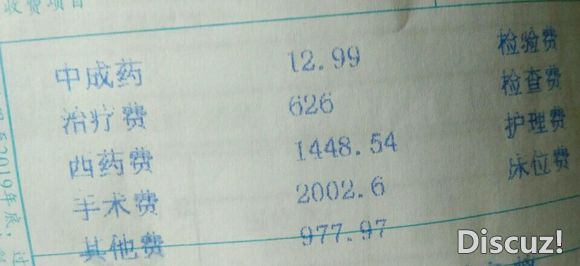 收费项目
中成药 12.99 检验费
治疗费 626 检查费
西药费 1448.54 护理费
手术费 2002.6 床位费
其他费 977.97
2019年底，过
Discuz!